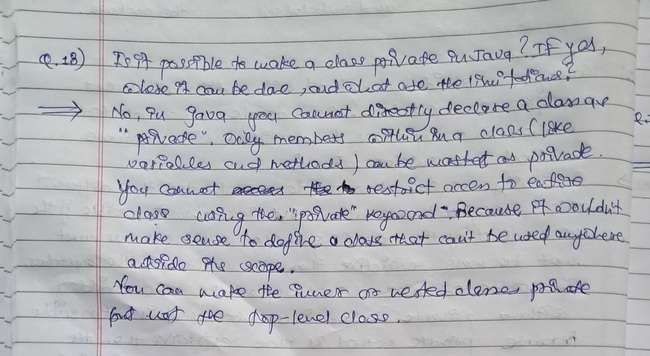 Q.18) Is it possible to make a class private in Java? If yes,
where it can be done, and what are the limitations?
⇒ No, in Java you cannot directly declare a class as
"private". Only members within a class (like
variables and methods) can be marked as private.
You cannot restrict access to entire
class using the "private" keyword. Because it wouldn't
make sense to define a class that can't be used anywhere
outside its scope.
You can make the inner or nested classes private
but not the top-level class.